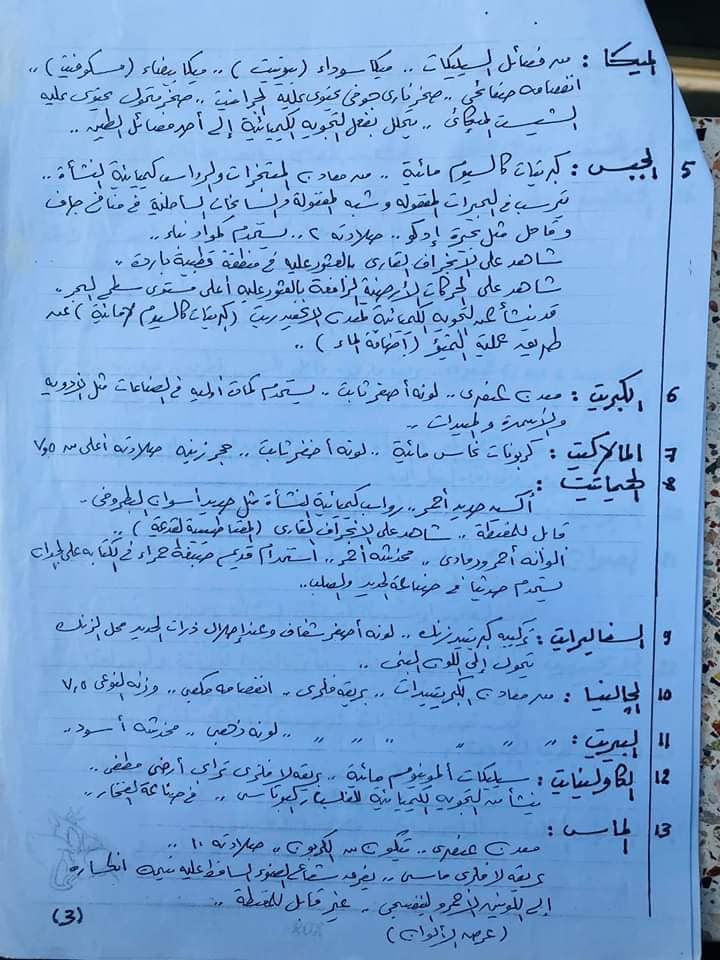 الميكا : من فصائل السيليكات .. ميكا سوداء (بيوتيت) .. ميكا بيضاء (مسكوفيت) ..
انفصامه صفائحى .. صخر نارى جوفى يحتوى عليه الجرانيت .. صخر متحول يحتوى عليه
الشيست الميكائى .. يتحلل بفعل التجوية الكيميائية إلى أحد فصائل الطين ..
5 الجبس : كبريتات كالسيوم مائية .. من معادن المتبخرات والرواسب كيميائية النشأة ..
تترسب فى البحيرات المقفولة وشبه المقفولة والسبخات الساحلية فى مناخ جاف
وقاحل مثل بحيرة إدكو .. صلادته ٢ .. يستخدم كمواد بناء ..
شاهد على الإنجراف القارى بالعثور عليه فى منطقة قطبية باردة ..
شاهد على الحركات الأرضية الرافعة بالعثور عليه أعلى مستوى سطح البحر ..
قد ينشأ من التجوية الكيميائية لمعدن الأنهيدريت (كبريتات كالسيوم لا مائية) عن
طريق عملية التميؤ (إضافة الماء) ..
6 الكبريت : معدن عنصرى .. لونه أصفر ثابت .. يستخدم كمادة أولية فى الصناعات مثل الأدوية
والأسمدة والمبيدات ..
7 المالاكيت : كربونات نحاس مائية .. لونه أخضر ثابت .. حجر زينه صلادته أعلى من ٧,٥
8 الهيماتيت :
أكسيد حديد أحمر .. رواسب كيميائية النشأة مثل حديد أسوان البطروخى ..
قابل للمغنطة .. شاهد على الإنجراف القارى (المغناطيسية القديمة) ..
ألوانه أحمر ورمادى .. مخدشه أحمر .. استخدام قديم صبغة حمراء فى الكتابه على الجدران
يستخدم حديثا فى صناعة الحديد والصلب ..
9 السفاليرايت : تركيبه كبريتيد زنك .. لونه أصفر شفاف وعند إحلال ذرات الحديد محل الزنك
يتحول إلى اللون البنى ..
10 الجالينا : من معادن الكبريتيدات .. بريقه فلزى .. انفصامه مكعبى .. وزنه النوعى ٧,٥
11 البيريت : " " " " " " .. لونه ذهبى .. مخدشه أسود ..
12 الكاولينايت : سيليكات ألومنيوم مائية .. بريقه لا فلزى ترابى أرضى مطفى ..
ينشأ من التجوية الكيميائية للفلسبار البوتاسى .. فى صناعة الفخار ..
13 الماس :
معدن عنصرى .. يتكون من الكربون .. صلادته ١٠ ..
بريقه لا فلزى ماسى .. يفرق شعاع الضوء الساقط عليه نتيجة انكساره
إلى اللونين الأحمر والبنفسجى .. غير قابل للمغنطة ..
(عرض الألوان)
(3)